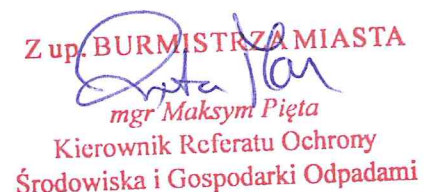 Z up. BURMISTRZA MIASTA
mgr Maksym Pięta
Kierownik Referatu Ochrony
Środowiska i Gospodarki Odpadami